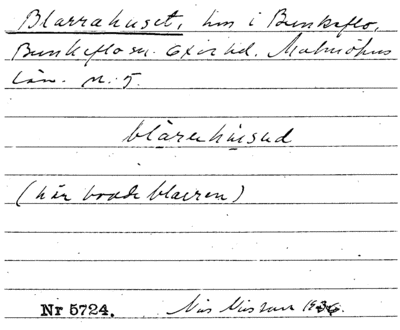 Blarrahuset, hus i Bunkeflo,
Bunkeflo sn. Oxie hd. Malmöhus
län. n:r 5.
blárəhúsəd
(här bodde blarren)
Nr 5724. Nils Nilsson 1936.